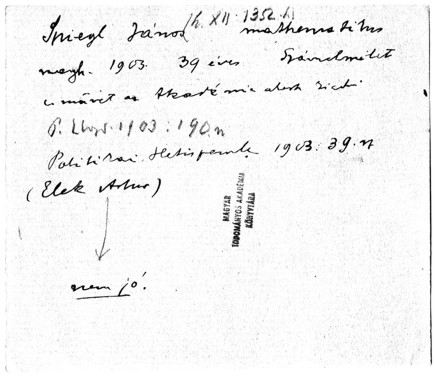 Spiegl János /h. XII. 1352. h. mathematikus
megh. 1903. 39 éves Számelmélet
c. művét az Akadémia adta ki
P. Lloyd. 1903: 190. n
Politikai Hetiszemle 1903: 39. n
(Elek Artur)
nem jó.
MAGYAR
TUDOMÁNYOS AKADÉMIA
KÖNYVTÁRA